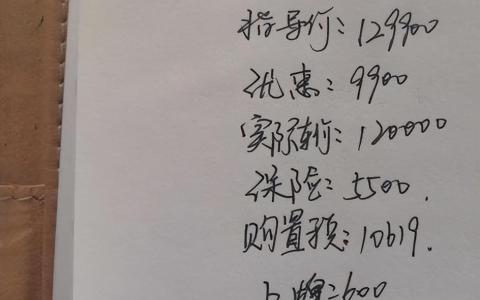 指导价: 129900
优惠: 9900
实际车价: 120000
保险: 5500.
购置税: 10619.
上牌: 600